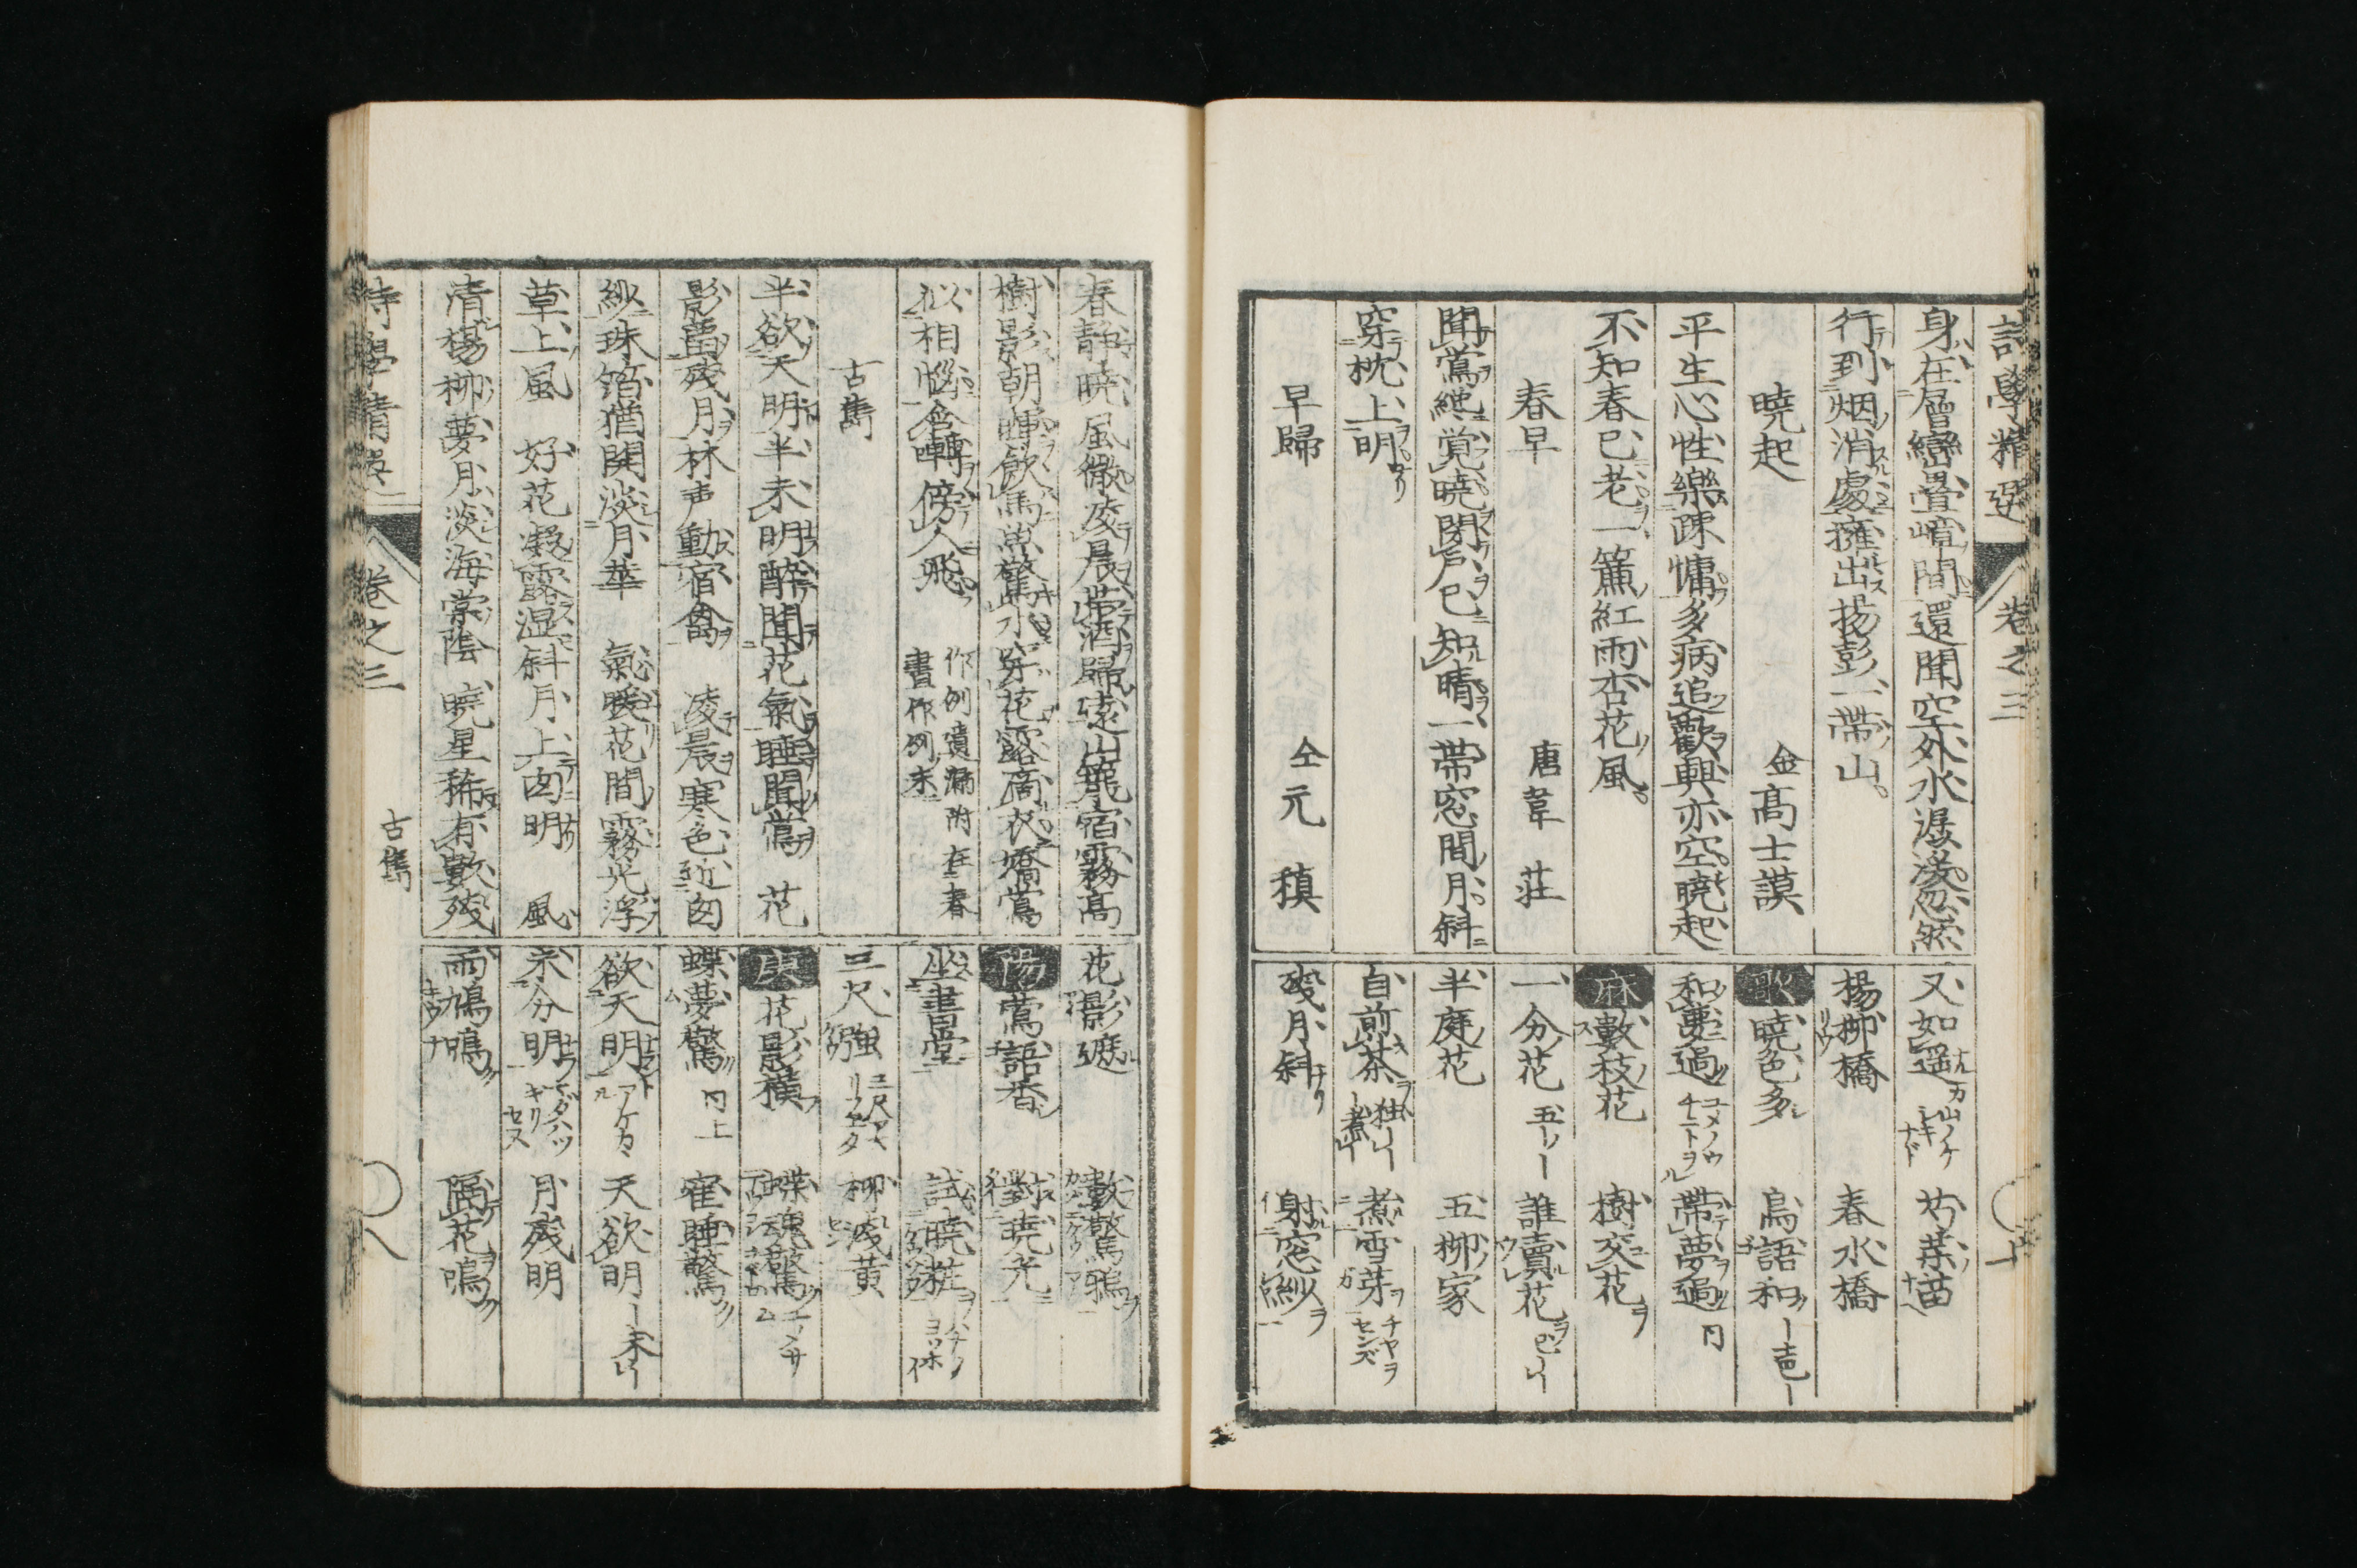 詩學精選 卷之三
身在層巒疊嶂間還聞空外水潺湲忽然
行到烟消處擁出揚彭一帶山
曉起 金高士談
平生心性樂疎慵多病追歡興亦空曉起
不知春已老一簾紅雨杏花風
春早 唐韋莊
聞鶯纔覚曉閉戶已知晴一帶窓間月斜
穿枕上明
早歸 仝元稹
又如遥
楊柳橋 春水橋
歌 曉色多 鳥語和
和夢過 帶夢過
麻 數枝花 樹交花
一分花 誰賣花
半庭花 五柳家
自煎茶 煮雪芽
殘月斜 射窓紗
春静曉風微凌晨帶酒歸遠山籠宿霧高
樹影朝暉飲馬魚驚水穿花露滴衣嬌鶯
似相惱含囀傍人飛 作例遺漏附在春
書作例末
古雋
半欲天明半未明醉聞花氣睡聞鶯 花
影蓄殘月林声動宿禽 凌晨寒色近囱
紗珠箔猶開淡月華 氣暖花間霧光浮
草上風 好花凝露湿斜月上囱明 風
清楊柳夢月淡海棠陰 曉星稀有數殘
花影遮 數驚鴉
陽 鶯語香 對曉光
坐書堂 試曉粧
三尺强 柳淺黄
庚 花影横 蝶魂驚
蝶夢驚 同上 寉睡驚
欲天明 天欲明
未分明 月殘明
雨鳩鳴 隔花鳴
詩學精選 卷之三 古雋 八